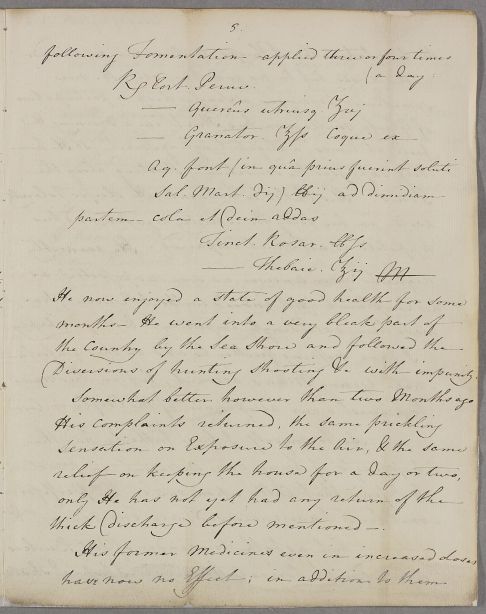 5.
following Fomentation applied three or four times
(a Day:
℞ Cort. Peruv.
— Quercûs utriusq ʒvj
— Granator. ℥ſs Coque ex
Aq. font (in quâ prius fuerint soluti
Sal. Mart. ℈ij) ℔ij ad dimidiam
partem — cola et dein addas
Tinct. Rosar. ℔ſs
— Thebaic. ʒij M
He now enjoyed a state of good health for some
months — He went into a very bleak part of
the Country by the Sea Shore and followed the
Diversions of hunting shooting &c with impunity.
Somewhat better however than two Months ago
His complaints returned, the same prickling
Sensation on Exposure to the Air, & the same
relief on keeping the house for a day or two,
only He has not yet had any return of the
thick Discharge before mentioned —.
His former Medicines even in increased doses
have now no Effect; in addition to them